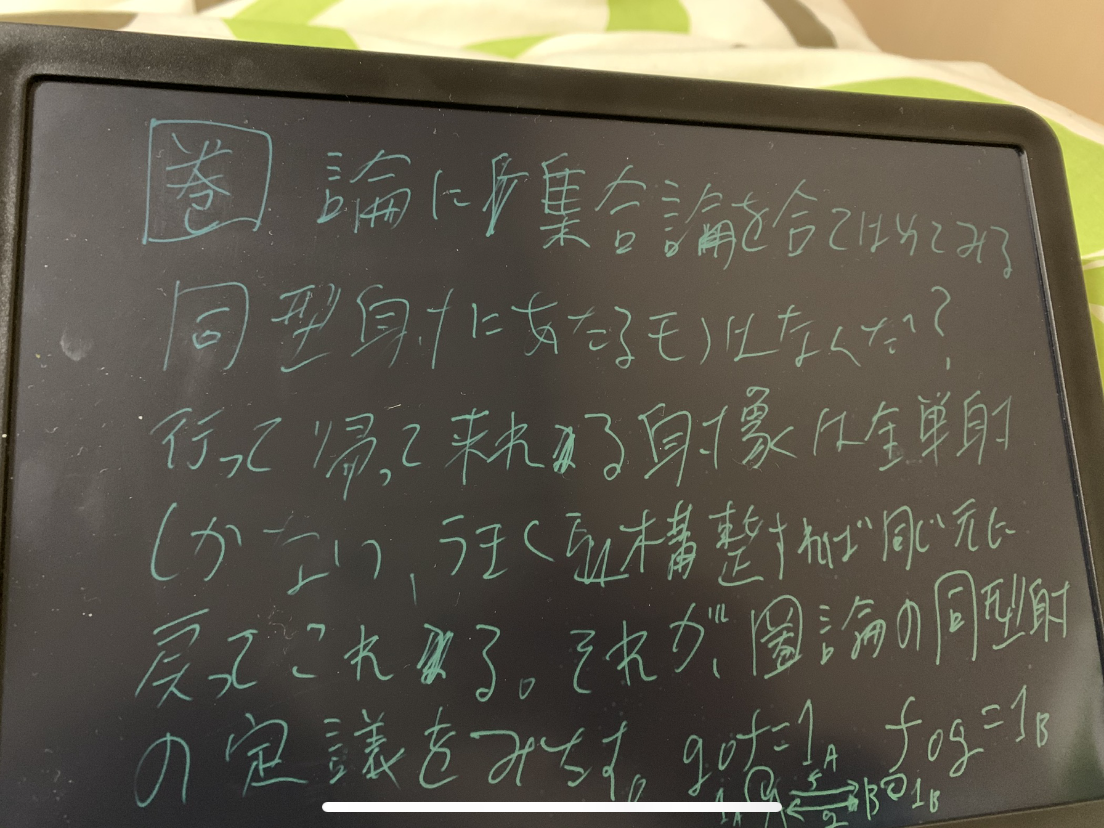 圏 論に集合論を合てはめてみる
同型射にあたるモノはなんだ?
行って帰って来れる射象は全単射
しかない、うまく 構整すれば同じ元に
戻ってこれる。それが、圏論の同型射
の定議をみたす。g∘f=1_A f∘g=1_B
1_A A f g B 1_B